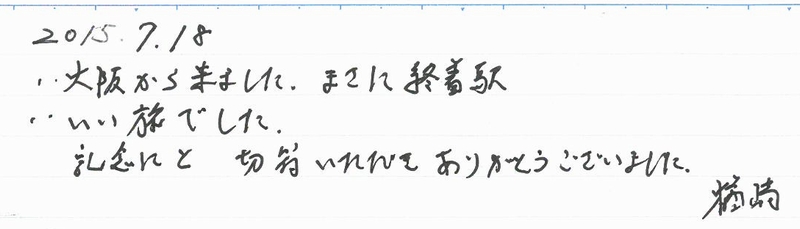 2015.7.18
‥大阪から来ました. まさに終着駅
‥いい旅でした.
記念にと 切符いただき ありがとうございました.